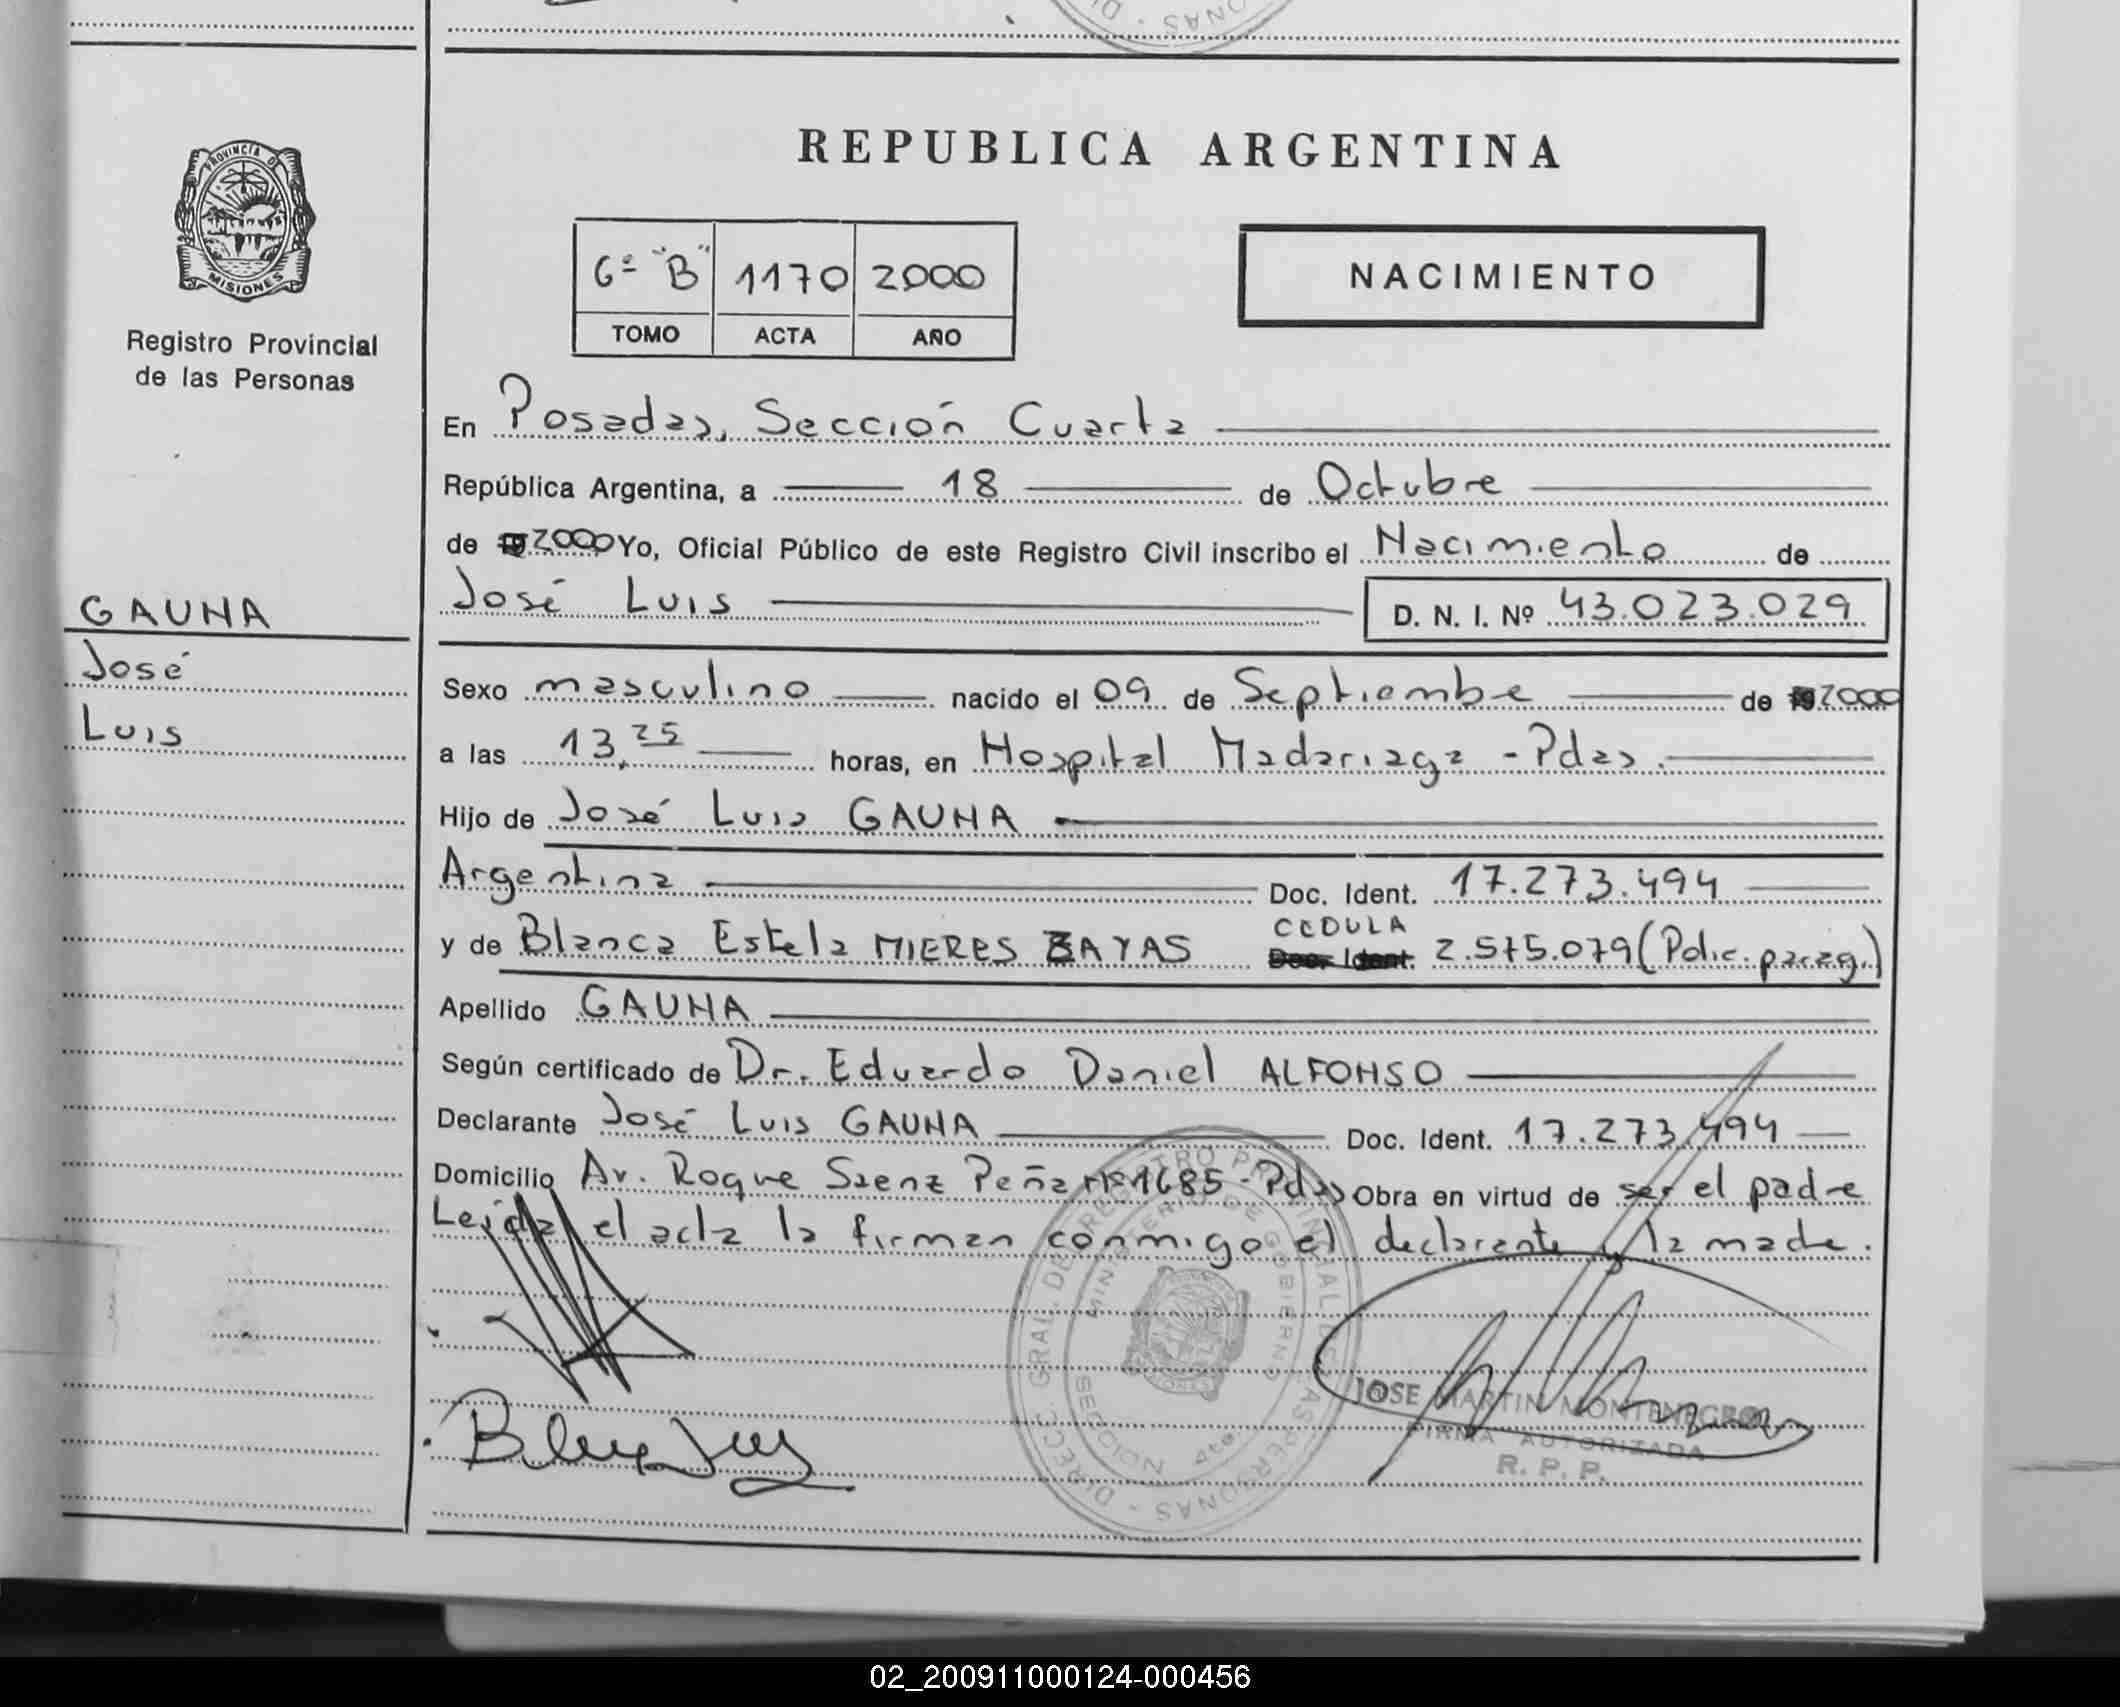 PROVINCIA DE
MISIONES
Registro Provincial
de las Personas
GAUNA
José
Luis
REPUBLICA ARGENTINA
6º "B" 1170 2000
TOMO ACTA AÑO
NACIMIENTO
En Posadas, Sección Cuarta
República Argentina, a 18 de Octubre
de 2000 Yo, Oficial Público de este Registro Civil inscribo el Nacimiento de
José Luis D. N. I. Nº 43.023.029
Sexo masculino nacido el 09 de Septiembre de 2000
a las 13,25 horas, en Hospital Madariaga - Pdas.
Hijo de José Luis GAUNA
Argentina Doc. Ident. 17.273.494
CEDULA
y de Blanca Estela MIERES ZAYAS Doc. Ident. 2.575.079 (Polic. parag.)
Apellido GAUNA
Según certificado de Dr. Eduardo Daniel ALFONSO
Declarante José Luis GAUNA Doc. Ident. 17.273.494
Domicilio Av. Roque Saenz Peña nº 1685 - Pdas Obra en virtud de ser el padre
Leida el acta la firman conmigo el declarante y la madre.
DIRECC. GRAL. DE REGISTRO PROVINCIAL DE LAS PERSONAS
MINISTERIO DE GOBIERNO
SECCION 4ta
JOSE MARTIN MONTENEGRO
FIRMA AUTORIZADA
R. P. P.
02_200911000124-000456